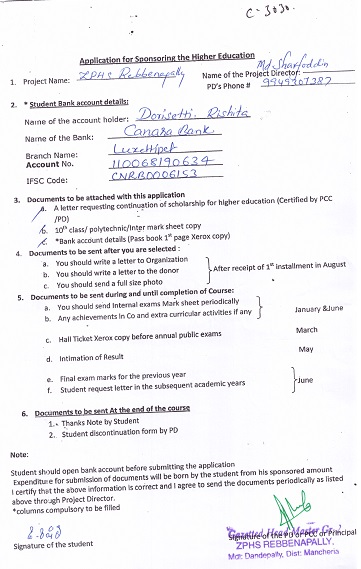 C-3030
Application for Sponsoring the Higher Education
1. Project Name: ZPHS Rebbenapally Name of the Project Director: Md Sharfoddin
PD's Phone # 9949307387
2. * Student Bank account details:
Name of the account holder: Donisetti. Rishita
Name of the Bank: Canara Bank
Branch Name: Luxettipet
Account No. 110068190634
IFSC Code: CNRB0006153
3. Documents to be attached with this application
a. A letter requesting continuation of scholarship for higher education (Certified by PCC
/PD)
b. 10th class/ polytechnic/Inter mark sheet copy
c. *Bank account details (Pass book 1st page Xerox copy)
4. Documents to be sent after you are selected :
a. You should write a letter to Organization
b. You should write a letter to the donor
c. You should send a full size photo
After receipt of 1st Installment in August
5. Documents to be sent during and until completion of Course:
a. You should send Internal exams Mark sheet periodically
b. Any achievements in Co and extra curricular activities if any
January &June
c. Hall Ticket Xerox copy before annual public exams March
d. Intimation of Result May
e. Final exam marks for the previous year
f. Student request letter in the subsequent academic years
June
6. Documents to be sent At the end of the course
1. Thanks Note by Student
2. Student discontinuation form by PD
Note:
Student should open bank account before submitting the application
Expenditure for submission of documents will be born by the student from his sponsored amount
I certify that the above information is correct and I agree to send the documents periodically as listed
above through Project Director.
*columns compulsory to be filled
Signature of the student
Signature of the PD or PCC or Principal
Gazetted Head Master Gr-I
ZPHS REBBENAPALLY,
Mdl: Dandepally, Dist: Mancheria